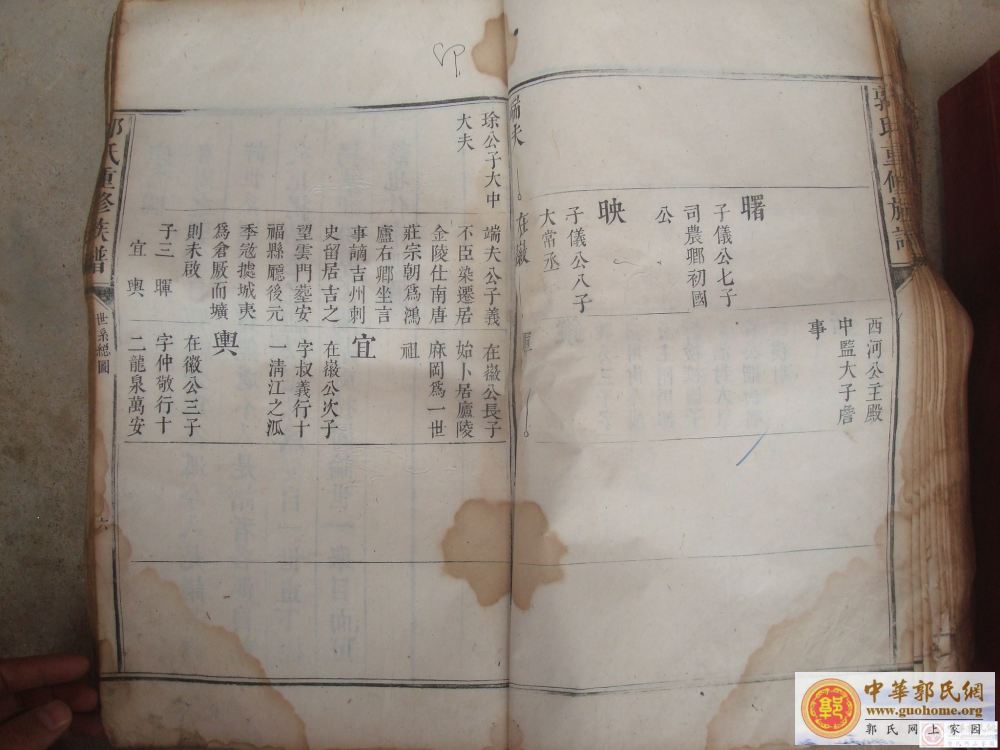 郭氏重修族譜
曙
子儀公七子
司農鄊初國
公
映
子儀公八子
大常丞
西河公主殿
中監大子詹
事
端夫
在徽
琮公子大中
大夫
端夫公子義
不臣染遷居
金陵仕南唐
莊宗朝爲鴻
廬右卿坐言
事謫吉州刺
史留居吉之
望雲門墓安
福縣廳後元
季冦摅城夷
爲倉厫而壙
則未啟
子三 暉
宜 輿
在徽公長子
始卜居廬陵
麻岡爲一世
祖
宜
在徽公次子
字叔義行十
一淸江之派
輿
在徽公三子
字仲敬行十
二龍泉萬安
氏重修族譜
世系總圖
六
中華郭氏網
www.guohome.org
郭氏网上家园